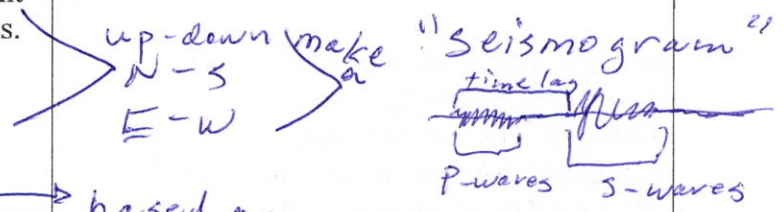 s.
up-down make "seismogram"
N-S a time lag
E-W
P-waves S-waves
based